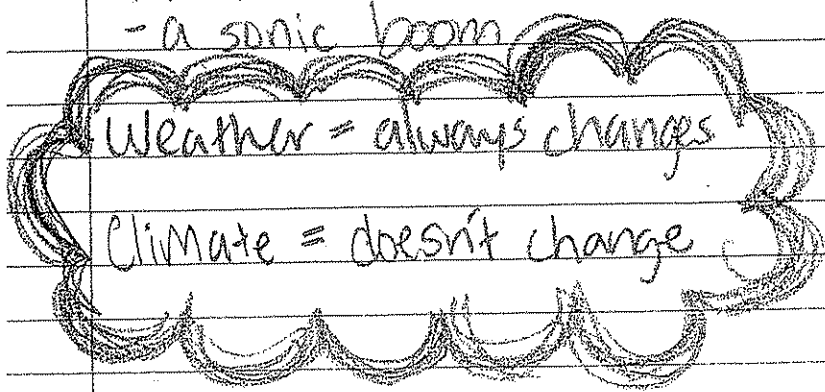 - a sonic boom
Weather = always changes
Climate = doesn't change